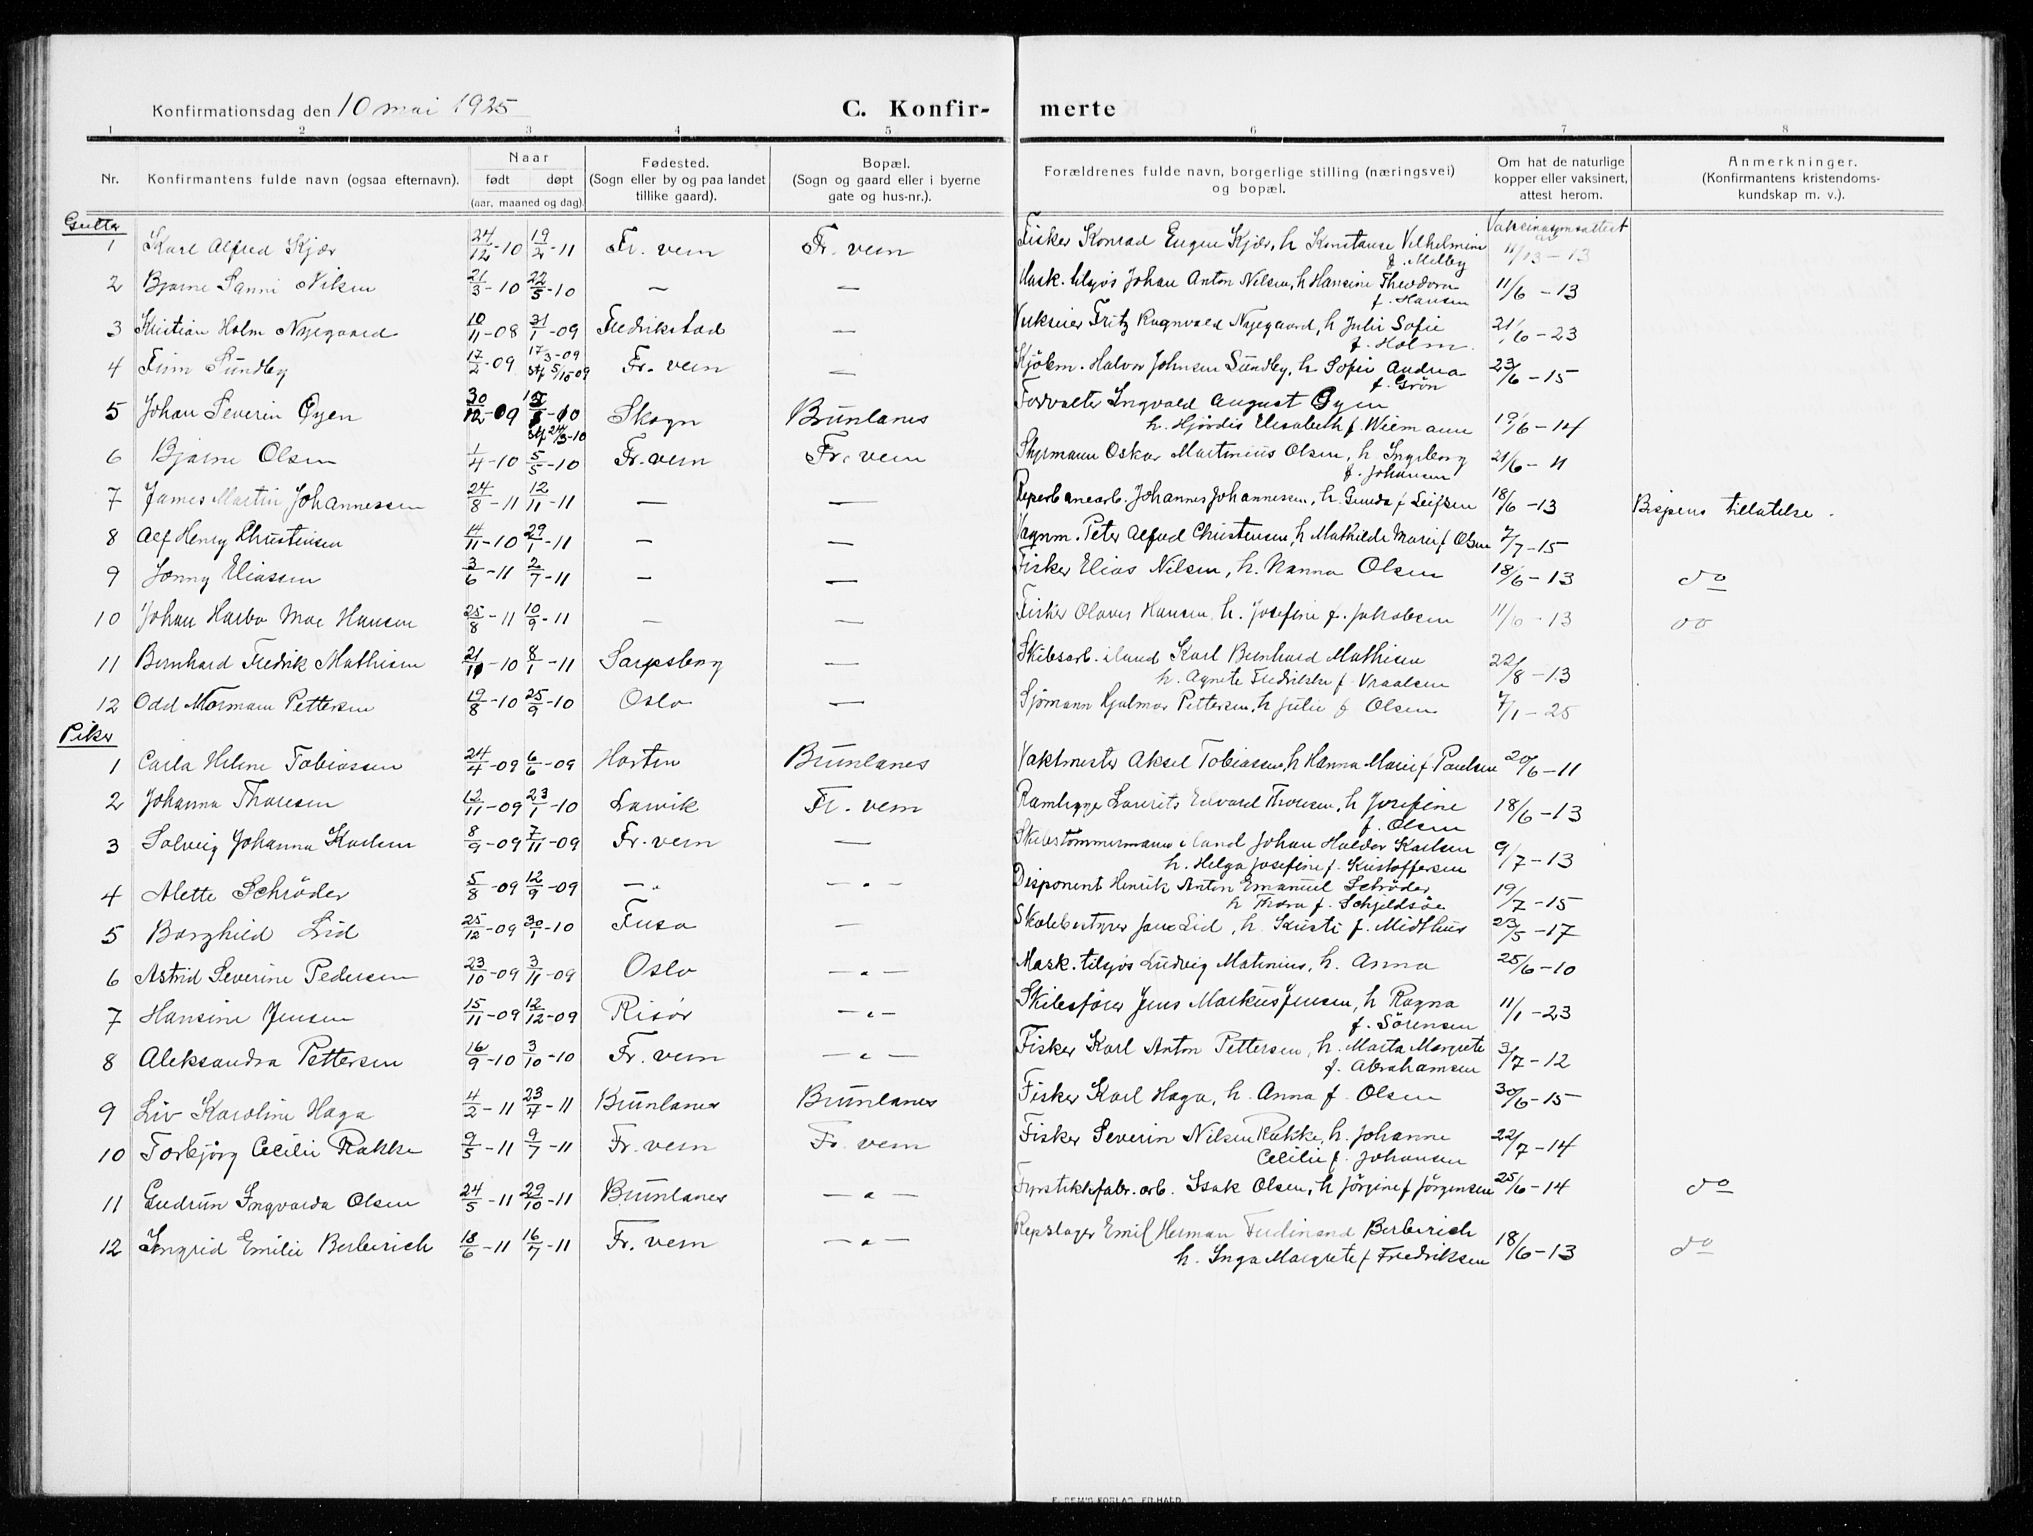 Konfirmationsdag den 10 mai 1925 C. Konfir- merte
1 2 3 4 5 6 7 8
Nr. Konfirmantens fulde navn (ogsaa efternavn). Naar født døpt (aar, maaned og dag). Fødested. (Sogn eller by og paa landet tillike gaard). Bopæl. (Sogn og gaard eller i byerne gate og hus-nr.). Forældrenes fulde navn, borgerlige stilling (næringsvei) og bopæl. Om hat de naturlige kopper eller vaksinert, attest herom. Anmerkninger. (Konfirmantens kristendoms- kundskap m. v.).
Gutter
Vaksinasjonsattest av
1 Karl Alfred Kjær 24/12-10 19/2-11 Fr. vern Fr. vern Fisker Konrad Eugen Kjær, h Konstanse Vilhelmine f. Melby 11/13-13
2 Bjarne Sanni Nilsen 21/3-10 22/5-10 — — Mask. tilsjøs Johan Anton Nilsen, h Hansine Theodora f. Hansen 11/6-13
3 Kristian Holm Nygaard 10/11-08 31/1-09 Fredrikstad — Fritz Ragnvald Nygaard, h Julie Sofie f. Holm 21/6-23
4 Finn Sundby 17/2-09 17/3-09 stf 5/10-09 Fr. vern — Kjøbm. Halvor Johnsen Sundby, h Sofie Andrea f. Grön 23/6-15
5 Johan Severin Øyen 30/12-09 -10 stf 24/3-10 Skogn Brunlanes Forvalter Ingvald August Øyen
h. Hjördis Elisabeth f. Wiemann 19/6-14
6 Bjarne Olsen 1/4-10 5/5-10 Fr. vern Fr. vern Styrmann Oskar Martinius Olsen, h Ingeborg f. Johansen 21/6-11
7 James Martin Johannessen 24/8-11 12/11-11 — — Reperbanearb. Johannes Johannessen, h. Gunda f Leifsen 18/6-13 Bispens tillatelse.
8 Alf Henry Christensen 14/11-10 29/1-11 — — Vognm. Peter Alfred Christensen, h Mathilde Marie f Olsen 7/7-15
9 Jonny Eliassen 3/6-11 2/7-11 — — Fisker Elias Nilsen, h. Nanna Olsen 18/6-13 do
10 Johan Harbo Moe Hansen 25/8-11 10/9-11 — — Fisker Olaves Hansen h. Josefine f. Jakobsen 11/6-13 do
11 Bernhard Fredrik Mathisen 21/11-10 8/1-11 Sarpsborg — Skibsarb. iland Karl Bernhard Mathisen
h. Agnete Fredrikke f. Vraalsen 22/8-13
12 Odd Normann Pettersen 19/8-10 25/9-10 Oslo — Sjömann Hjalmar Pettersen, h Julie f Olsen 7/1-25
Piker
1 Carla Helene Tobiassen 24/4-09 6/6-09 Horten Brunlanes Vaktmester Aksel Tobiassen, h Hanna Marie f Paulsen 20/6-11
2 Johanna Thoresen 12/11-09 23/1-10 Larvik Fr. vern Laurits Edvard Thoresen, h Josefine f. Olsen 18/6-13
3 Solveig Johanna Karlsen 8/9-09 7/11-09 Fr. vern — Skibstömmermann iland Johan Haldor Karlsen
h. Helga Josefine f. Kristoffersen 9/7-13
4 Alette Schröder 5/8-09 12/9-09 — " — " — Disponent Henrik Anton Emanuel Schröder
h Thora f. Schjeldsøe 19/7-15
5 Borghild Lid 25/12-09 30/1-10 Fusa — Skolebestyrer Jens Lid, h. Kristi f. Midthus 23/5-17
6 Astrid Severine Pedersen 23/10-09 3/11-09 Oslo — " — Mask. tilsjøs Ludvig Matinius, h. Anna 25/6-10
7 Hansine Jensen 15/11-09 12/12-09 Risör — " — Skibsfører Jens Markus Jensen, h Ragna f. Sörensen 11/1-23
8 Aleksandra Pettersen 16/9-10 3/10-10 Fr. vern — " — Fisker Karl Anton Pettersen, h. Marta Margrete f. Abrahamsen 3/7-12
9 Liv Karoline Haga 4/2-11 23/4-11 Brunlanes Brunlanes Fisker Karl Haga, h. Anna f. Olsen 30/6-15
10 Torbjörg Cecilie Rakke 9/5-11 9/7-11 Fr. vern Fr. vern Fisker Severin Nilsen Rakke, h. Johanne
Cecilie f. Johansen 22/7-14
11 Gudrun Ingvarda Olsen 24/5-11 29/10-11 Brunlanes — " — Fyrstikkfabr. arb. Isak Olsen, h Jörgine f Jörgensen 25/6-14 do
12 Ingrid Emilie Berberich 18/6-11 16/7-11 Fr. vern — " — Repslager Emil Herman Ferdinand Berberich
h. Inga Margrete f Fredriksen 18/6-13 do